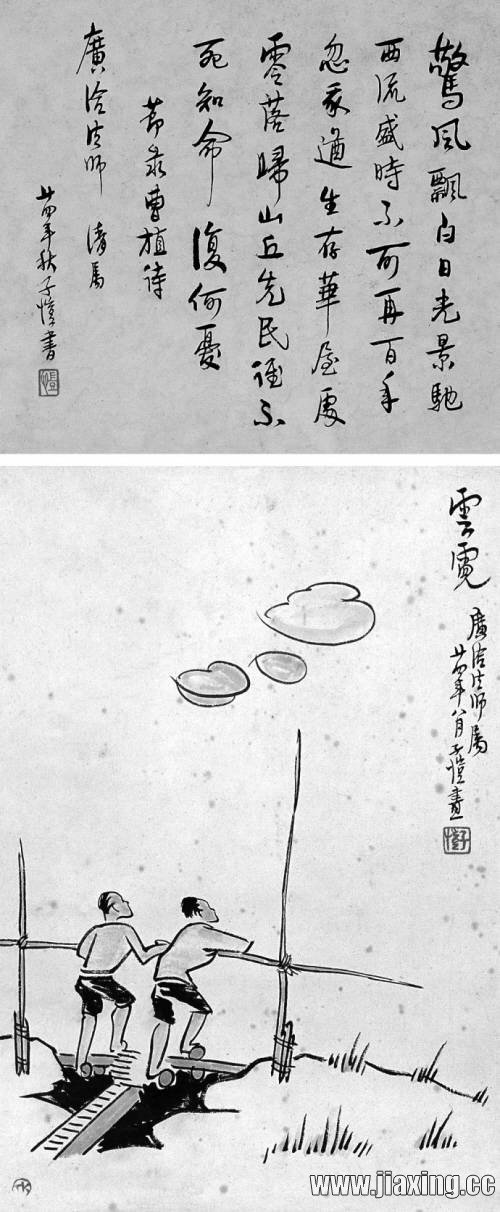 驚風飄白日光景馳
西流盛時不可再百年
忽我遒生存華屋處
零落歸山丘先民誰不
死知命復何憂
節录曹植詩
廣洽法師 清属
廿四年秋子愷書
愷
雲霓
廣洽法師属
廿四年八月子愷畫
子愷
www.jiaxing.cc